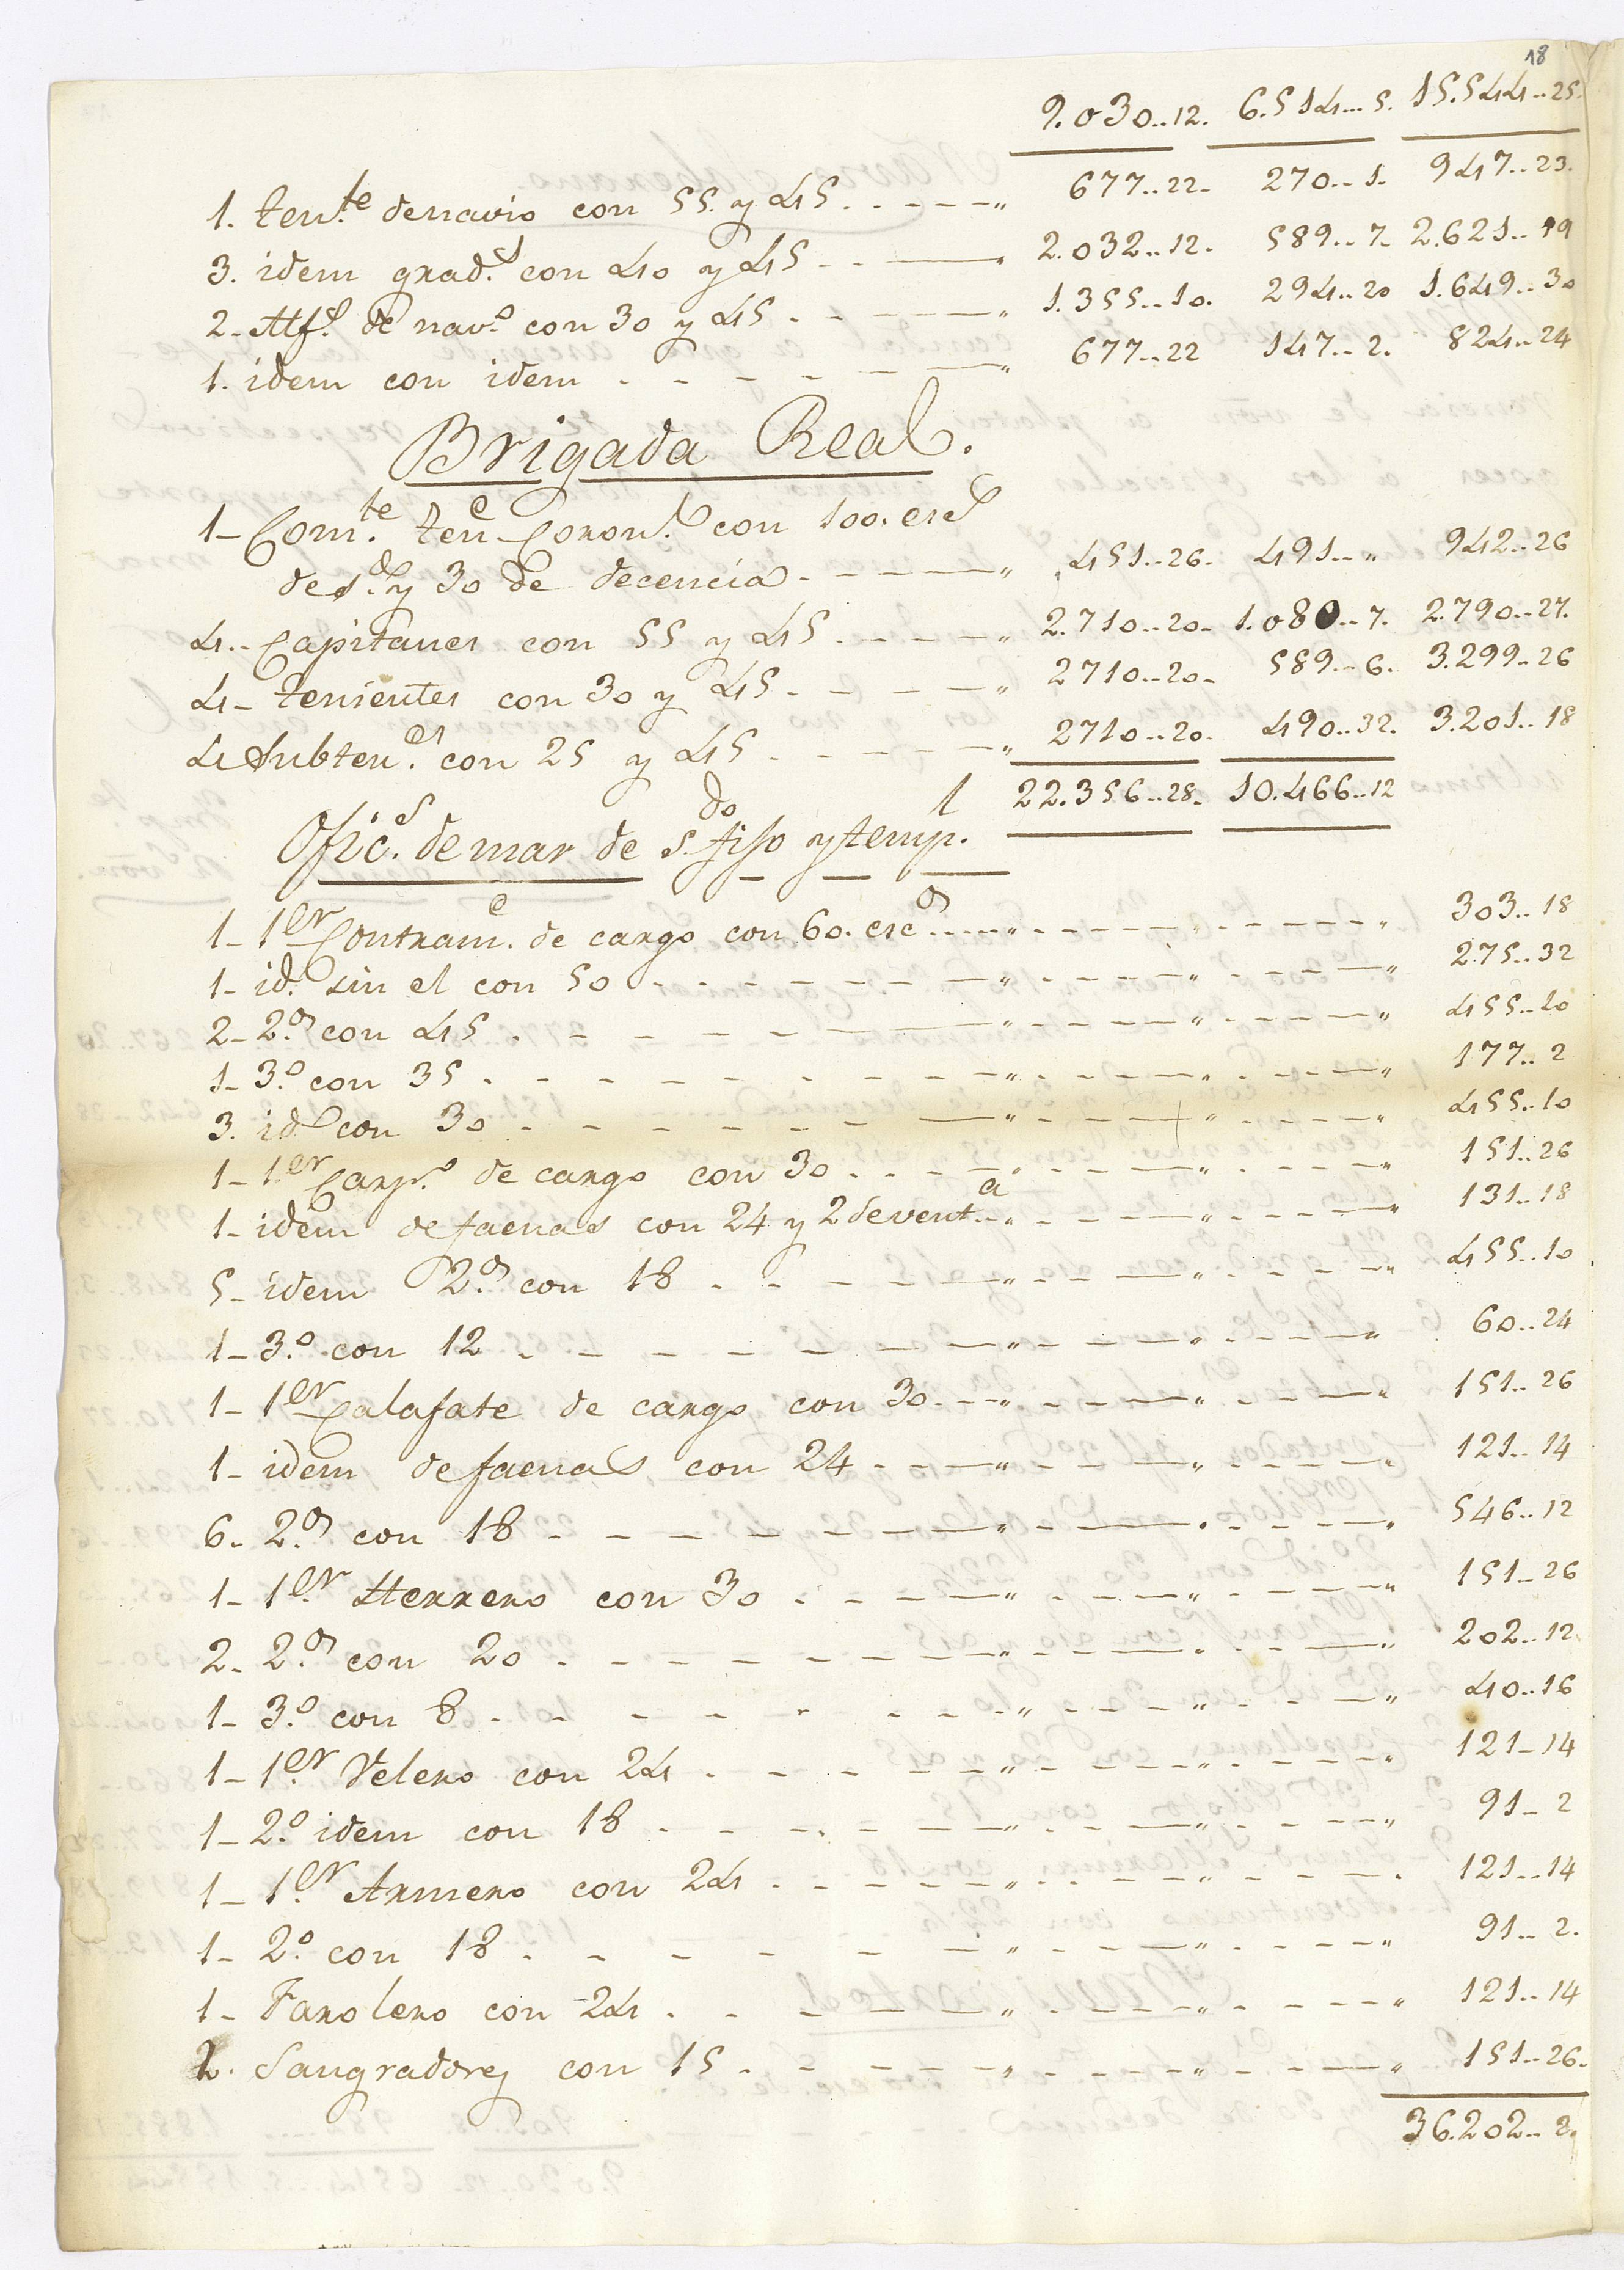 18
9.030..12. 6.514...5. 15.544..25.
1. ten.te denavio con 55. y 45 . - - - - " 677..22- 270..1. 947..23.
3. idem grad.s con 40 y 45 - - — " 2.032..12. 589..7. 2.621..19
2- Alf.s de nav.o con 30 y 45 . - - - — " 1.355..10. 294..20 1.649..30
1. idem con idem . - - - - — " 677..22 147..2. 824..24
Brigada Real.
1- Com.te ten.e Coron.l con 100. esc.s
de s.do y 30 de decencia . - - - — " 451..26. 491.." 942..26
4.. Capitanes con 55 y 45 . - - - — " 2.710..20- 1.080..7. 2.790..27.
4- tenientes con 30 y 45 . - - - — " 2710..20- 589..6. 3.299..26
4 Subten.es con 25 y 45 . - - - — " 2710..20. 490..32. 3.201..18
22.356..28. 10.466..12
Ofic.s de mar de s.do fijo y temp.l
1- 1.er Contram.e de cargo con 60. esc.s ....." . - - - - - " 303..18
1- id. sin el con 50 . - - - - - — " . - - - " . - - — " 275..32
2- 2.os con 45 . - - - - — " . - - - " . - - - — " 455..20
1- 3.o con 35 . - - - - - - - — " . - - - — . - - — " 177..2
3. id.s con 30 . - - - - - — " . - - - " . - - - — " 455..10
1- 1.er Carp.o de cargo con 30 . - - — . - - - — " . - - - — " 151..26
1- idem de faenas con 24 y 2 de vent.a .." . - - - — " . - - - — " 131..18
5- idem 2.os con 18 . - - - — " . - - — " . - - - " 455..10
1- 3.o con 12 . - - - - - — " . - - — " . - - - — " 60..24
1- 1.er Calafate de cargo con 30 . - - " . - - — " . - - — " 151..26
1- idem de faenas con 24 . - - — " . - - - — " . - - - — . 121..14
6. 2.os con 18 . - - - - - - — " . - — . - - - — " 546..12
1- 1.er Herrero con 30 . - - - — " . - - — " . - - - - " 151..26
2- 2.os con 20 . - - - - - - — " . - - - — . - - — " 202..12
1- 3.o con 8 . - - - - - - - . " . - - - " . - - — " 40..16
1- 1.er Velero con 24 . - - - - - " . - - - " . - - - — " 121-14
1- 2.o idem con 18 . - - - - - — " . - - — " . - - - — " 91-2
1- 1.er Armero con 24 . - - - - - " . - - - - " . - - - - . 121..14
1- 2.o con 18 . - - - - — " . - - — " . - - - - " 91..2.
1- Farolero con 24 . - - — — " . - - - - " . - - - - " 121..14
2. Sangradores con 15 . - - - - - " . - - - - " . - - — " 151..26.
36.202..2.